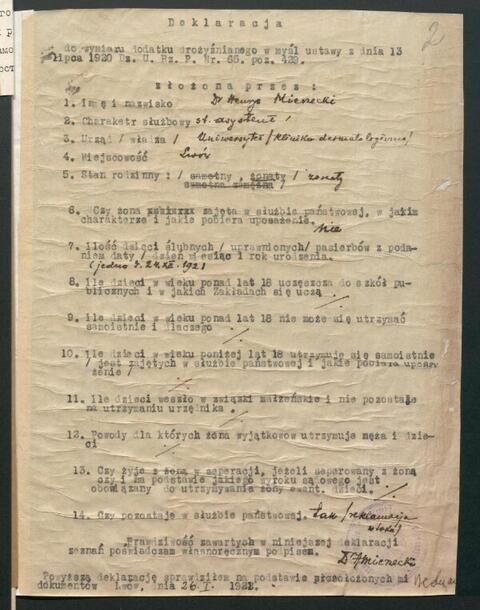 го
Р
АМО
ост
2
Deklaracja
do wymiaru dodatku drożyźnianego w myśl ustawy z dnia 13
lipca 1920 Dz. U. Rz. P. Nr. 65. poz. 429.
złożona przez :
1. Imię i nazwisko Dr Henryk Mierzecki
2. Charaktr służbowy st. asystent
3. Urząd / władza / Uniwersytet / Klinika dermatologiczna /
4. Miejscowość Lwów
5. Stan rodzinny : / samotny , żonaty / żonaty
samotna zamężna /
6. Czy żona zajęta w służbie państwowej, w jakim
charakterze i jakie pobiera uposażenie. nie
7. ilość dzieci ślubnych / uprawnionych/ pasierbów z poda-
niem daty / dzień miesiąc i rok urodzenia.
(jedno ur. 24.XII.1921
8. ile dzieci w wieku ponad lat 18 uczęszcza do szkół pu-
blicznych i w jakich Zakładach się uczą
9. ile dzieci w wieku ponad lat 18 nie może się utrzymać
samoistnie i dlaczego
10. ile dzieci w wieku poniżej lat 18 utrzymuje się samoistnie
/ jest zajętych w służbie państwowej i jakie pobiera uposa-
żenie /
11. ile dzieci weszło w związki małżeńskie i nie pozostaje
na utrzymaniu urzędnika.
12. Powody dla których żona wyjątkowo utrzymuje męża i dzie-
ci
13. Czy żyje z żoną w seperacji, jeżeli seperowany z żoną
czy i na podstawie jakiego wyroku sądowego jest
obowiązany do utrzymywania żony ewent. dzieci.
14. Czy pozostaje w służbie państwowej. tak
Prawdziwość zawartych w niniejszej deklaracji
zeznań poświadczam własnoręcznym podpisem.
Dr HMierzecki
Powyższą deklarację sprawdziłem na podstawie przedłożonych mi
dokumentów Lwow, dnia 26.I. 1922.